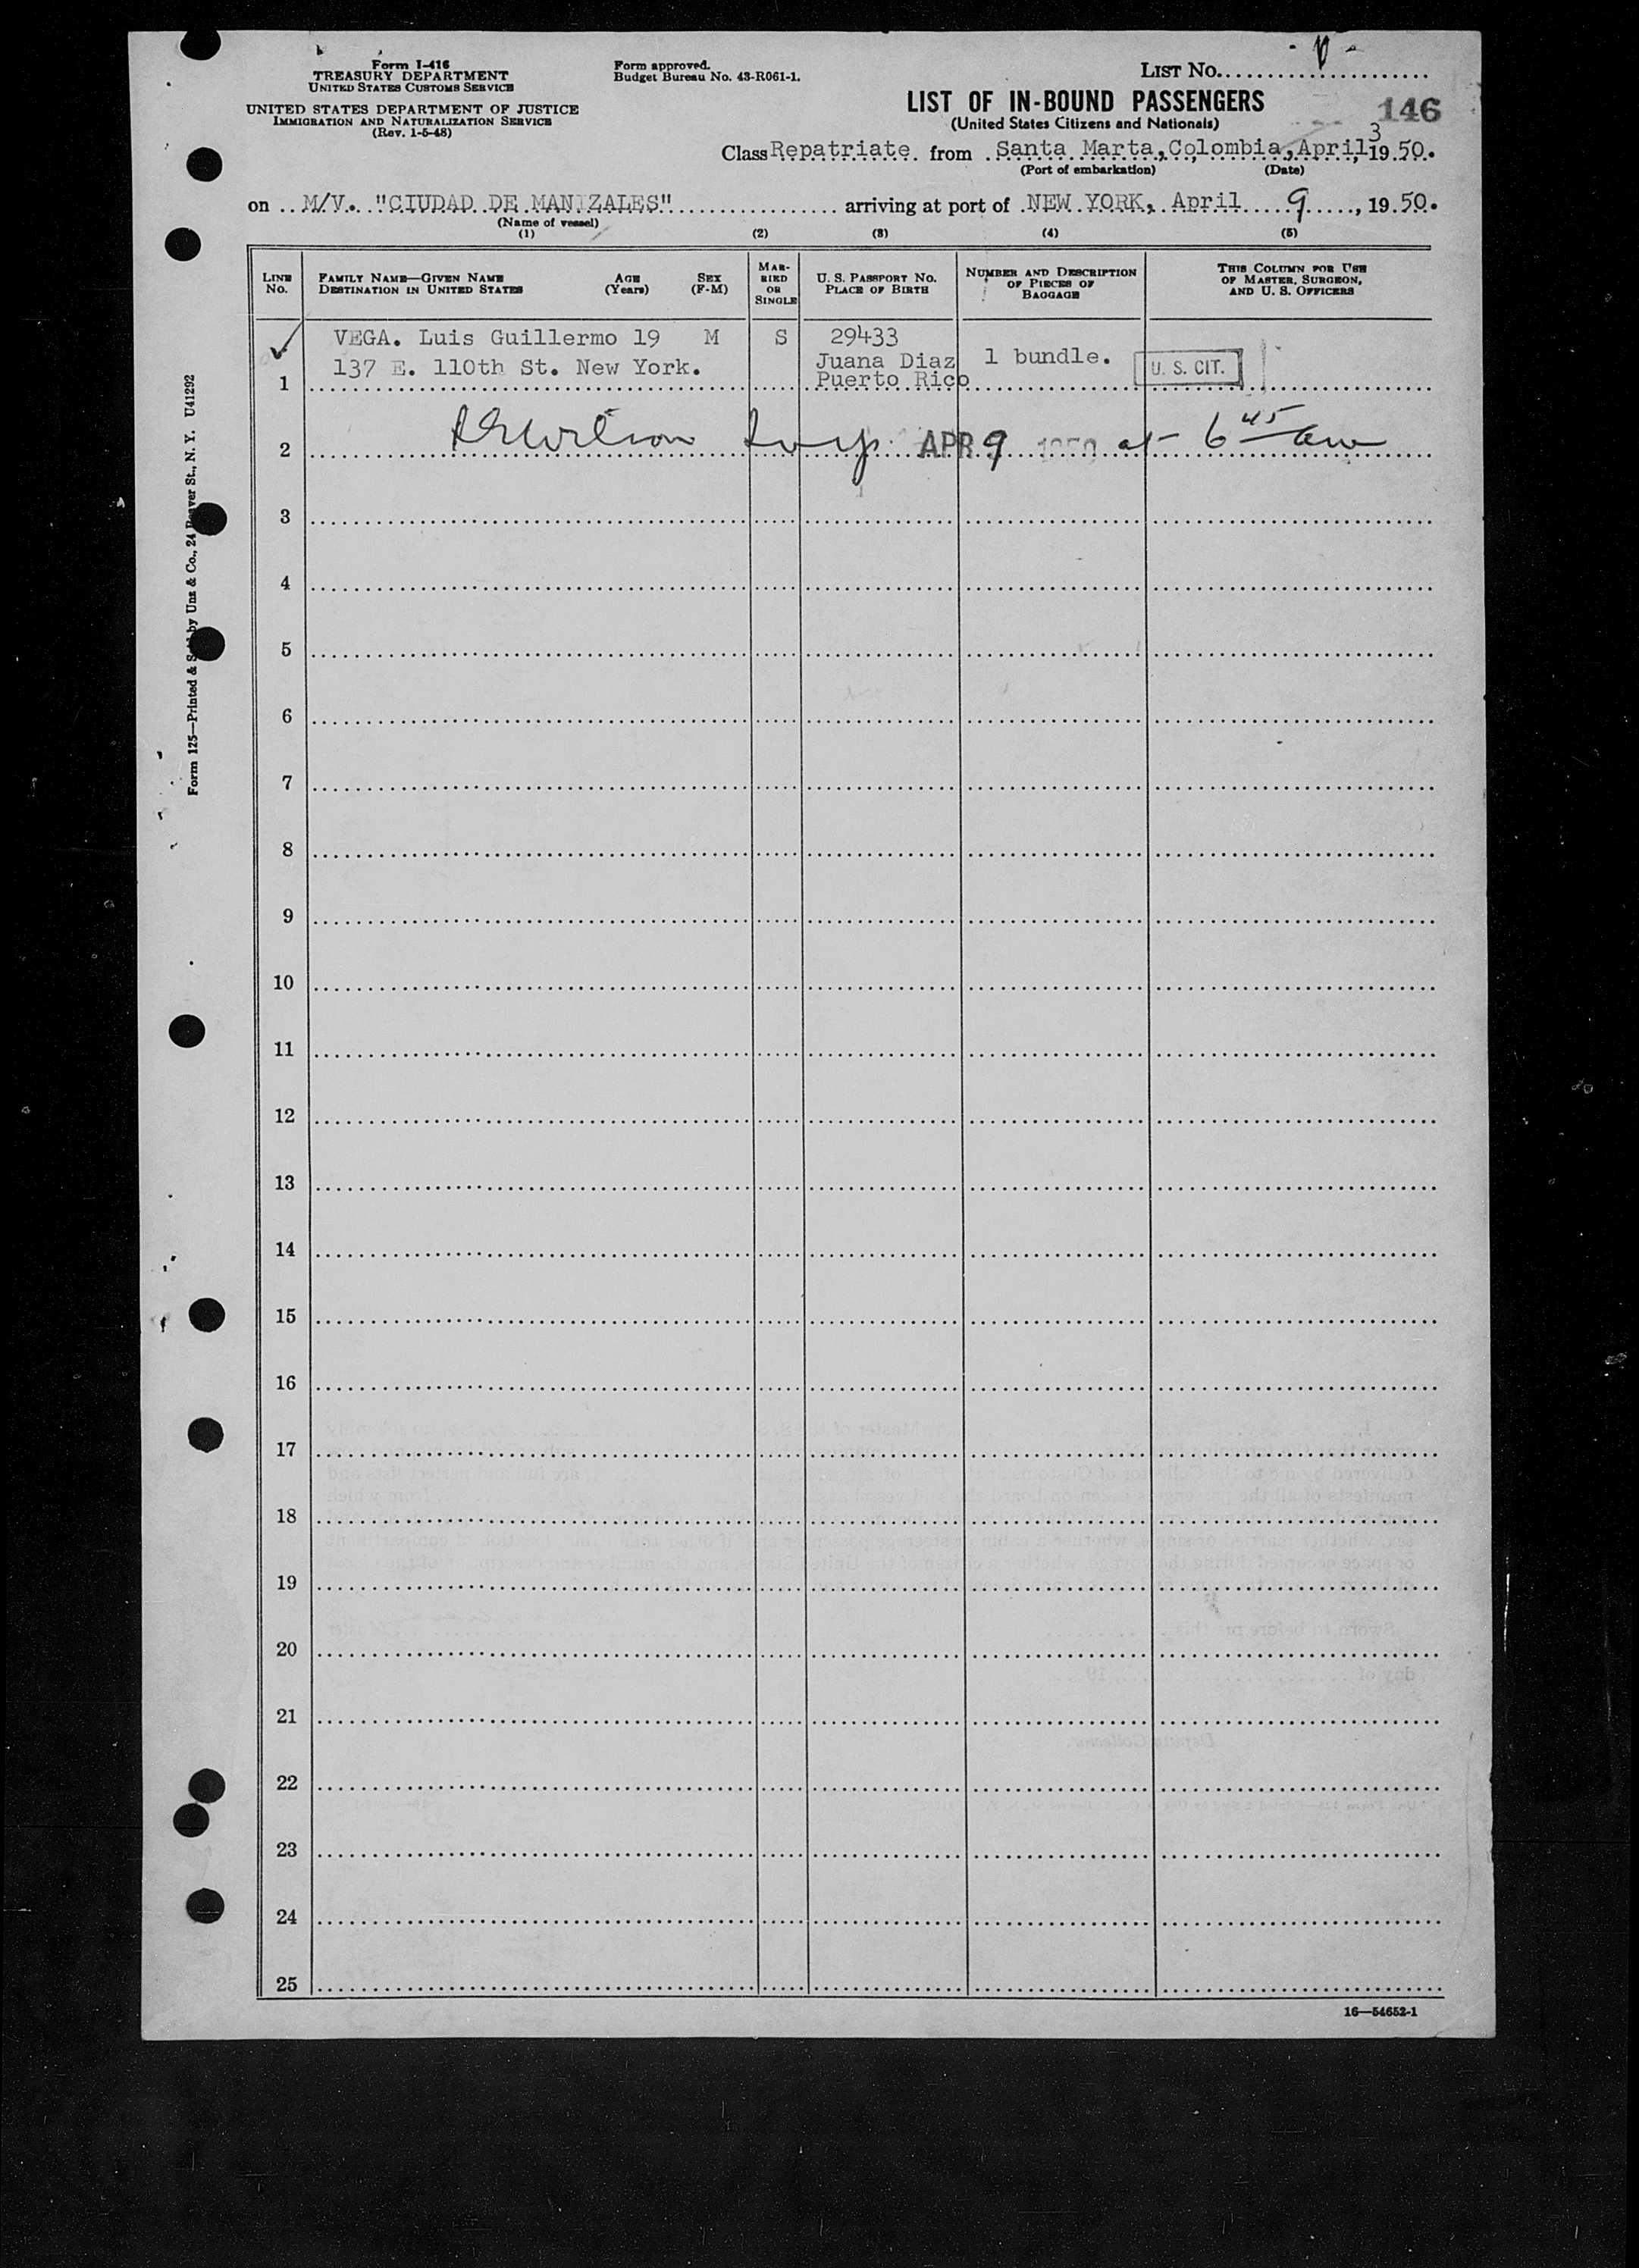 Form I-416
TREASURY DEPARTMENT
UNITED STATES CUSTOMS SERVICE
UNITED STATES DEPARTMENT OF JUSTICE
IMMIGRATION AND NATURALIZATION SERVICE
(Rev. 1-5-48)
Form approved.
Budget Bureau No. 43-R061-1.
LIST No.
LIST OF IN-BOUND PASSENGERS
(United States Citizens and Nationals)
146
Class Repatriate from Santa Marta, Colombia, April 3 1950.
(Port of embarkation) (Date)
on M/V. "CIUDAD DE MANIZALES" arriving at port of NEW YORK, April 9, 1950.
(Name of vessel)
(1) (2) (3) (4) (5)
LINE No.
FAMILY NAME—GIVEN NAME AGE SEX
DESTINATION IN UNITED STATES (Years) (F-M)
MARRIED OR SINGLE
U. S. PASSPORT NO.
PLACE OF BIRTH
NUMBER AND DESCRIPTION OF PIECES OF BAGGAGE
THIS COLUMN FOR USE OF MASTER, SURGEON, AND U. S. OFFICERS
VEGA. Luis Guillermo 19 M S 29433
137 E. 110th St. New York. Juana Diaz 1 bundle. U. S. CIT.
1 Puerto Rico
2 Wilson Insp. APR 9 1950 at 6 45 am
3
4
5
6
7
8
9
10
11
12
13
14
15
16
17
18
19
20
21
22
23
24
25
16—54652-1
Form 125—Printed & Sold by Unz & Co., 24 Beaver St., N. Y. U41292